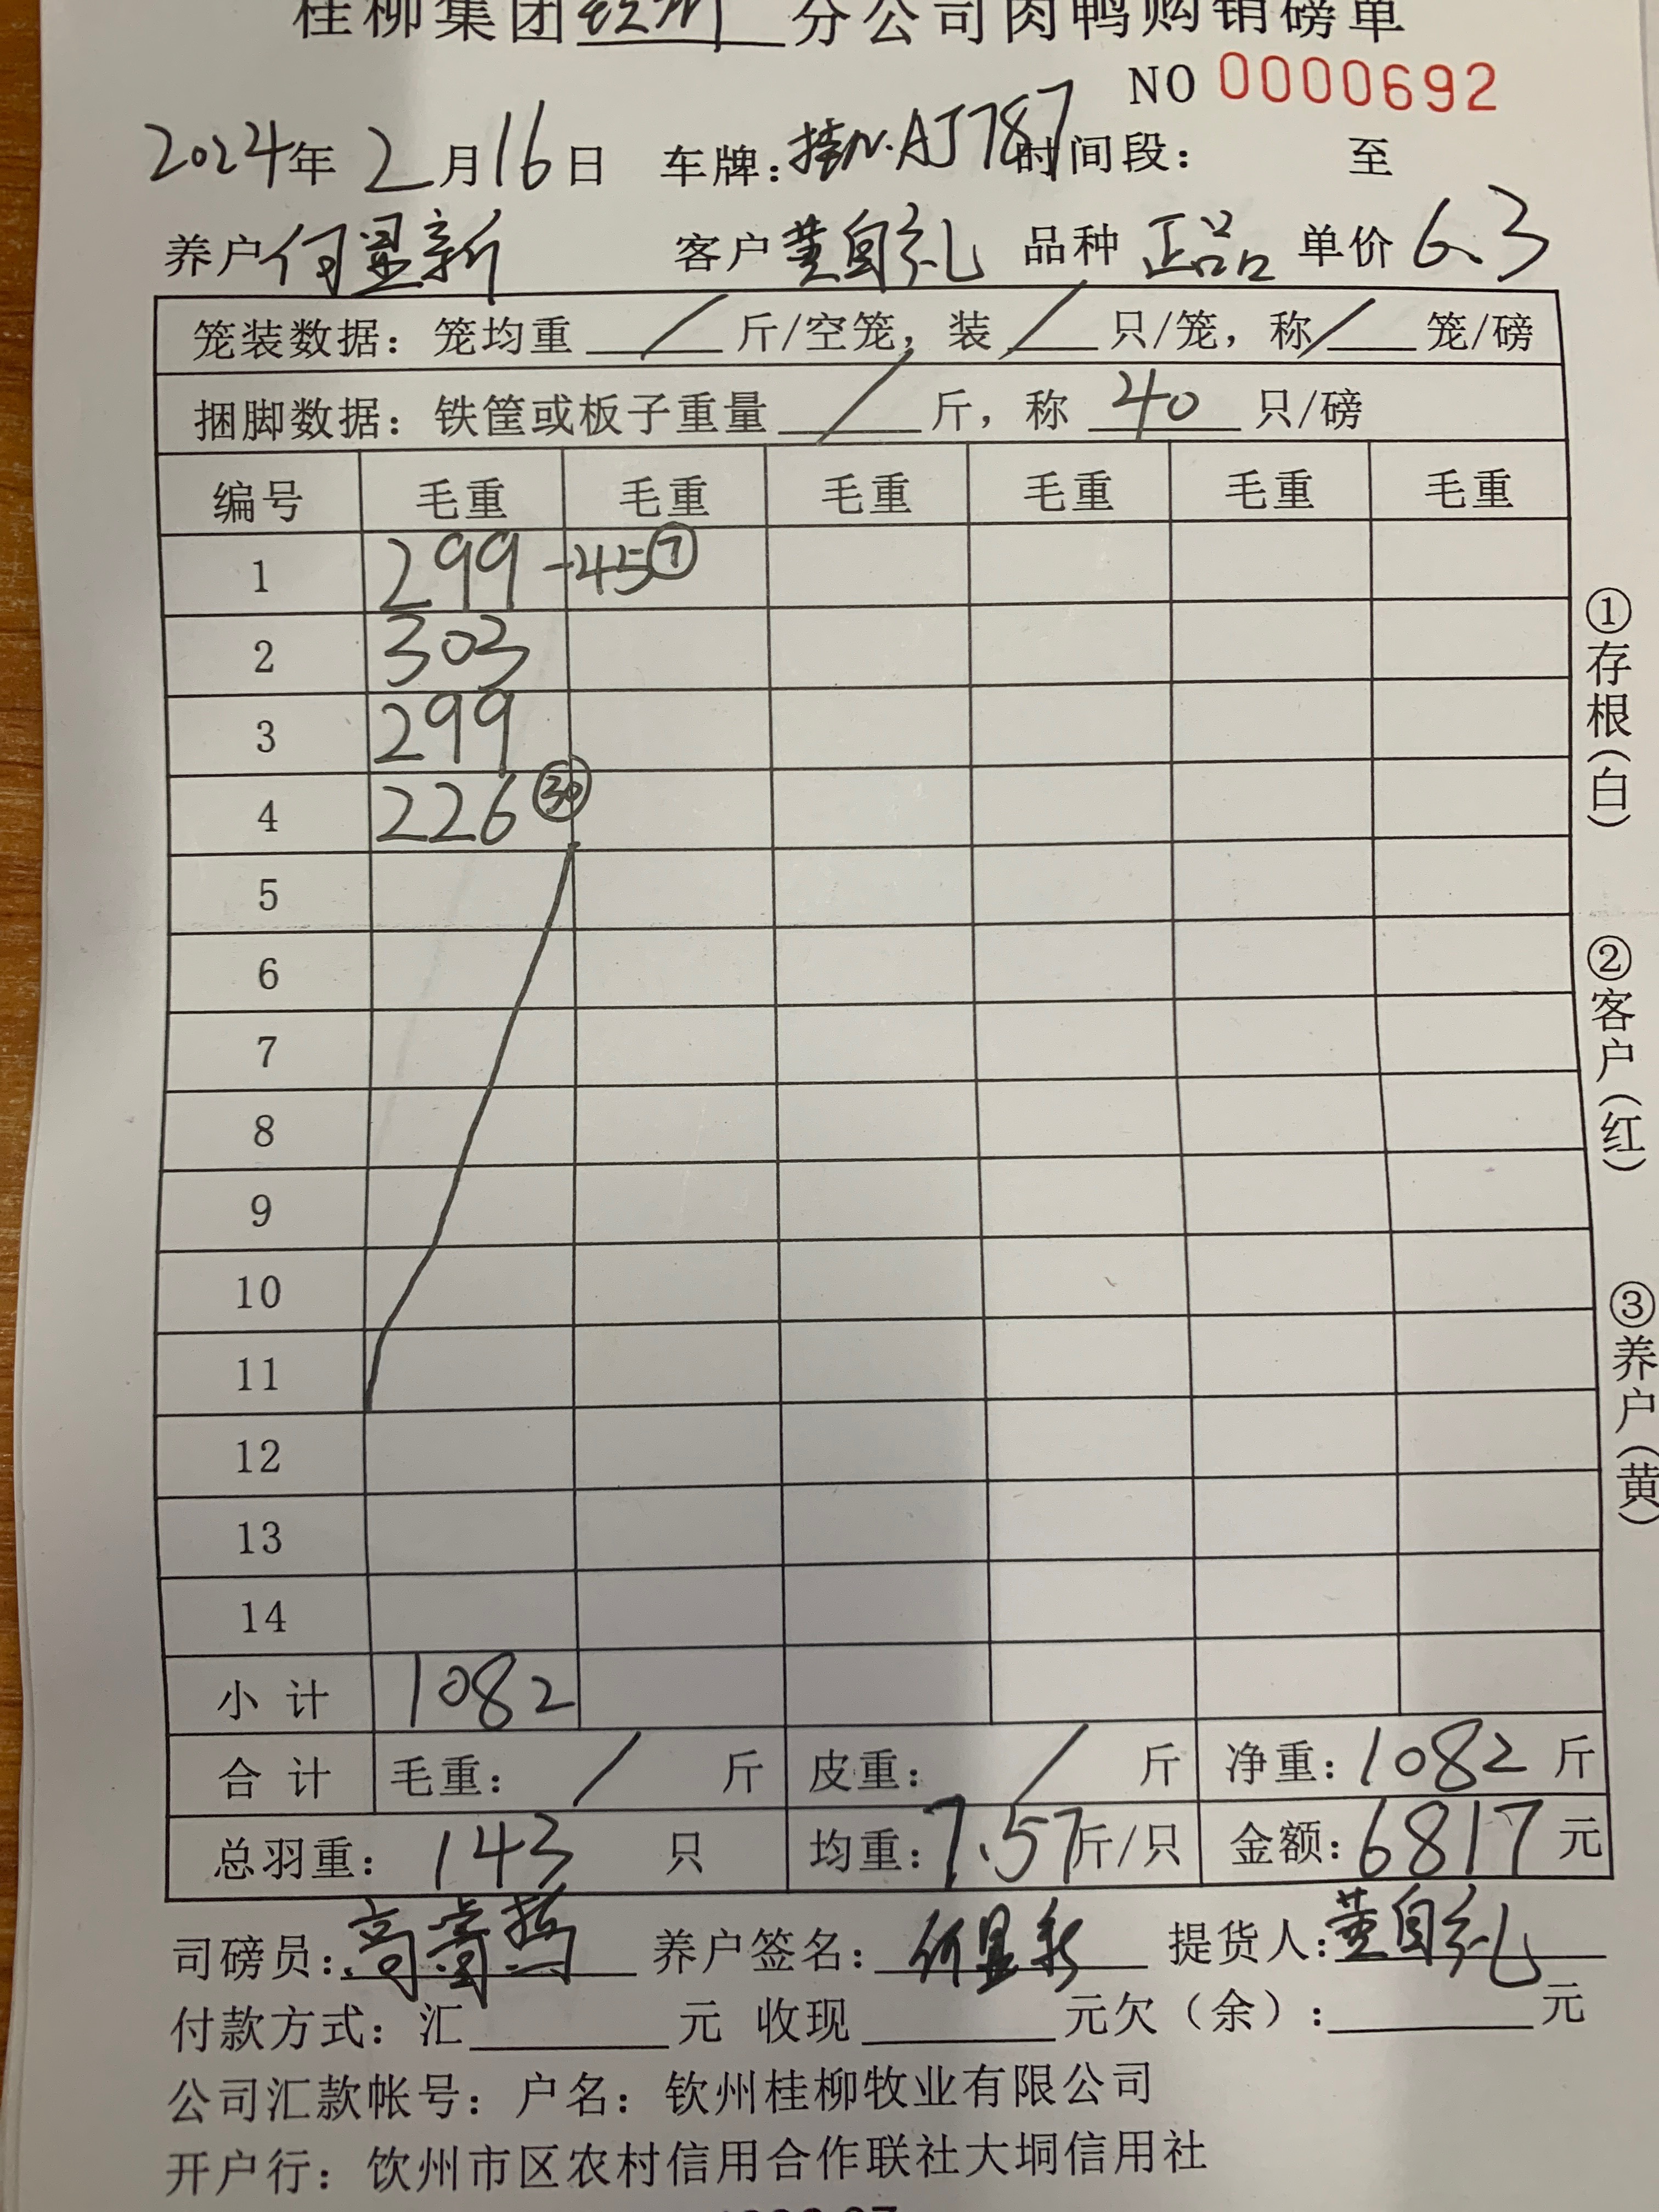 桂柳集团钦州分公司肉鸭购销磅单
NO 0000692
2024年 2月16日 车牌:桂N·AJ787 时间段: 至
养户 何显新 客户 黄自礼 品种 正品 单价 6.3
笼装数据: 笼均重 / 斤/空笼, 装 / 只/笼, 称 / 笼/磅
捆脚数据: 铁筐或板子重量 / 斤, 称 40 只/磅
编号 毛重 毛重 毛重 毛重 毛重 毛重
1 299 -45⑦
2 303
3 299
4 226 ㉚
5
6
7
8
9
10
11
12
13
14
小计 1082
合计 毛重: / 斤 皮重: / 斤 净重: 1082 斤
总羽重: 143 只 均重: 7.57斤/只 金额: 6817 元
司磅员: 高 养户签名: 何显新 提货人: 黄自礼
付款方式: 汇 元 收现 元欠(余): 元
公司汇款帐号: 户名: 钦州桂柳牧业有限公司
开户行: 钦州市区农村信用合作联社大垌信用社
①存根(白)
②客户(红)
③养户(黄)